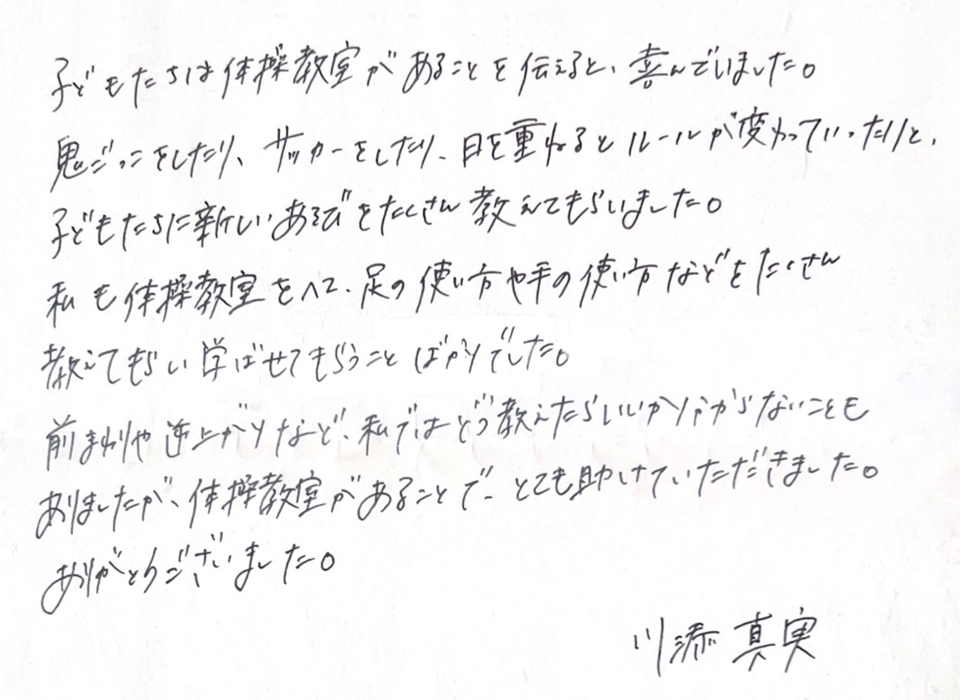 子どもたちは体操教室があることを伝えると、喜んでいました。
鬼ごっこをしたり、サッカーをしたり、日を重ねるとルールが変わっていったりと、
子どもたちに新しいあそびをたくさん教えてもらいました。
私も体操教室をへて、足の使い方や手の使い方などをたくさん
教えてもらい学ばせてもらうことばかりでした。
前まわりや逆上がりなど、私ではどう教えたらいいか分からないことも
ありましたが、体操教室があることで、とても助けていただきました。
ありがとうございました。
川添 真実